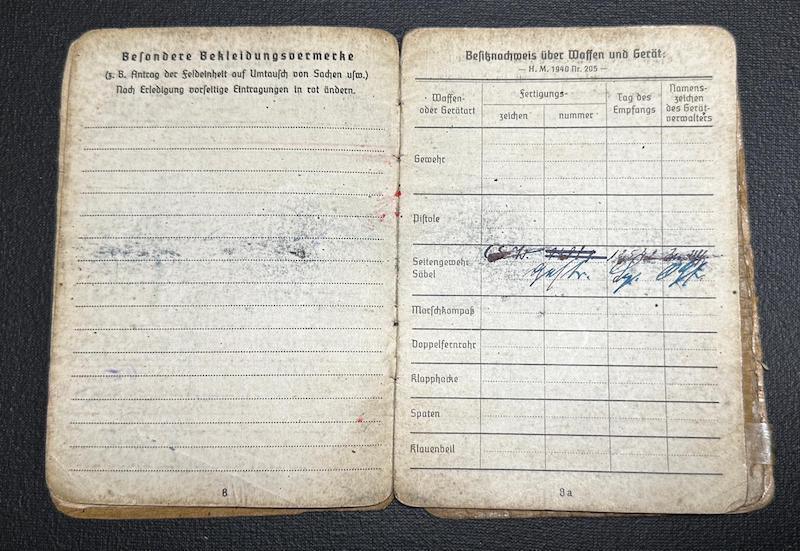 Besondere Bekleidungsvermerke
(z. B. Antrag der Feldeinheit auf Umtausch von Sachen usw.)
Nach Erledigung vorseitige Eintragungen in rot ändern.
8
Besitznachweis über Waffen und Gerät:
— H. M. 1940 Nr. 205 —
Waffen- oder Gerätart
Fertigungs-
zeichen
nummer
Tag des Empfangs
Namens-zeichen des Gerät-verwalters
Gewehr
Pistole
Seitengewehr
Säbel
gestr.
Marschkompaß
Doppelfernrohr
Klapphacke
Spaten
Klauenbeil
8a